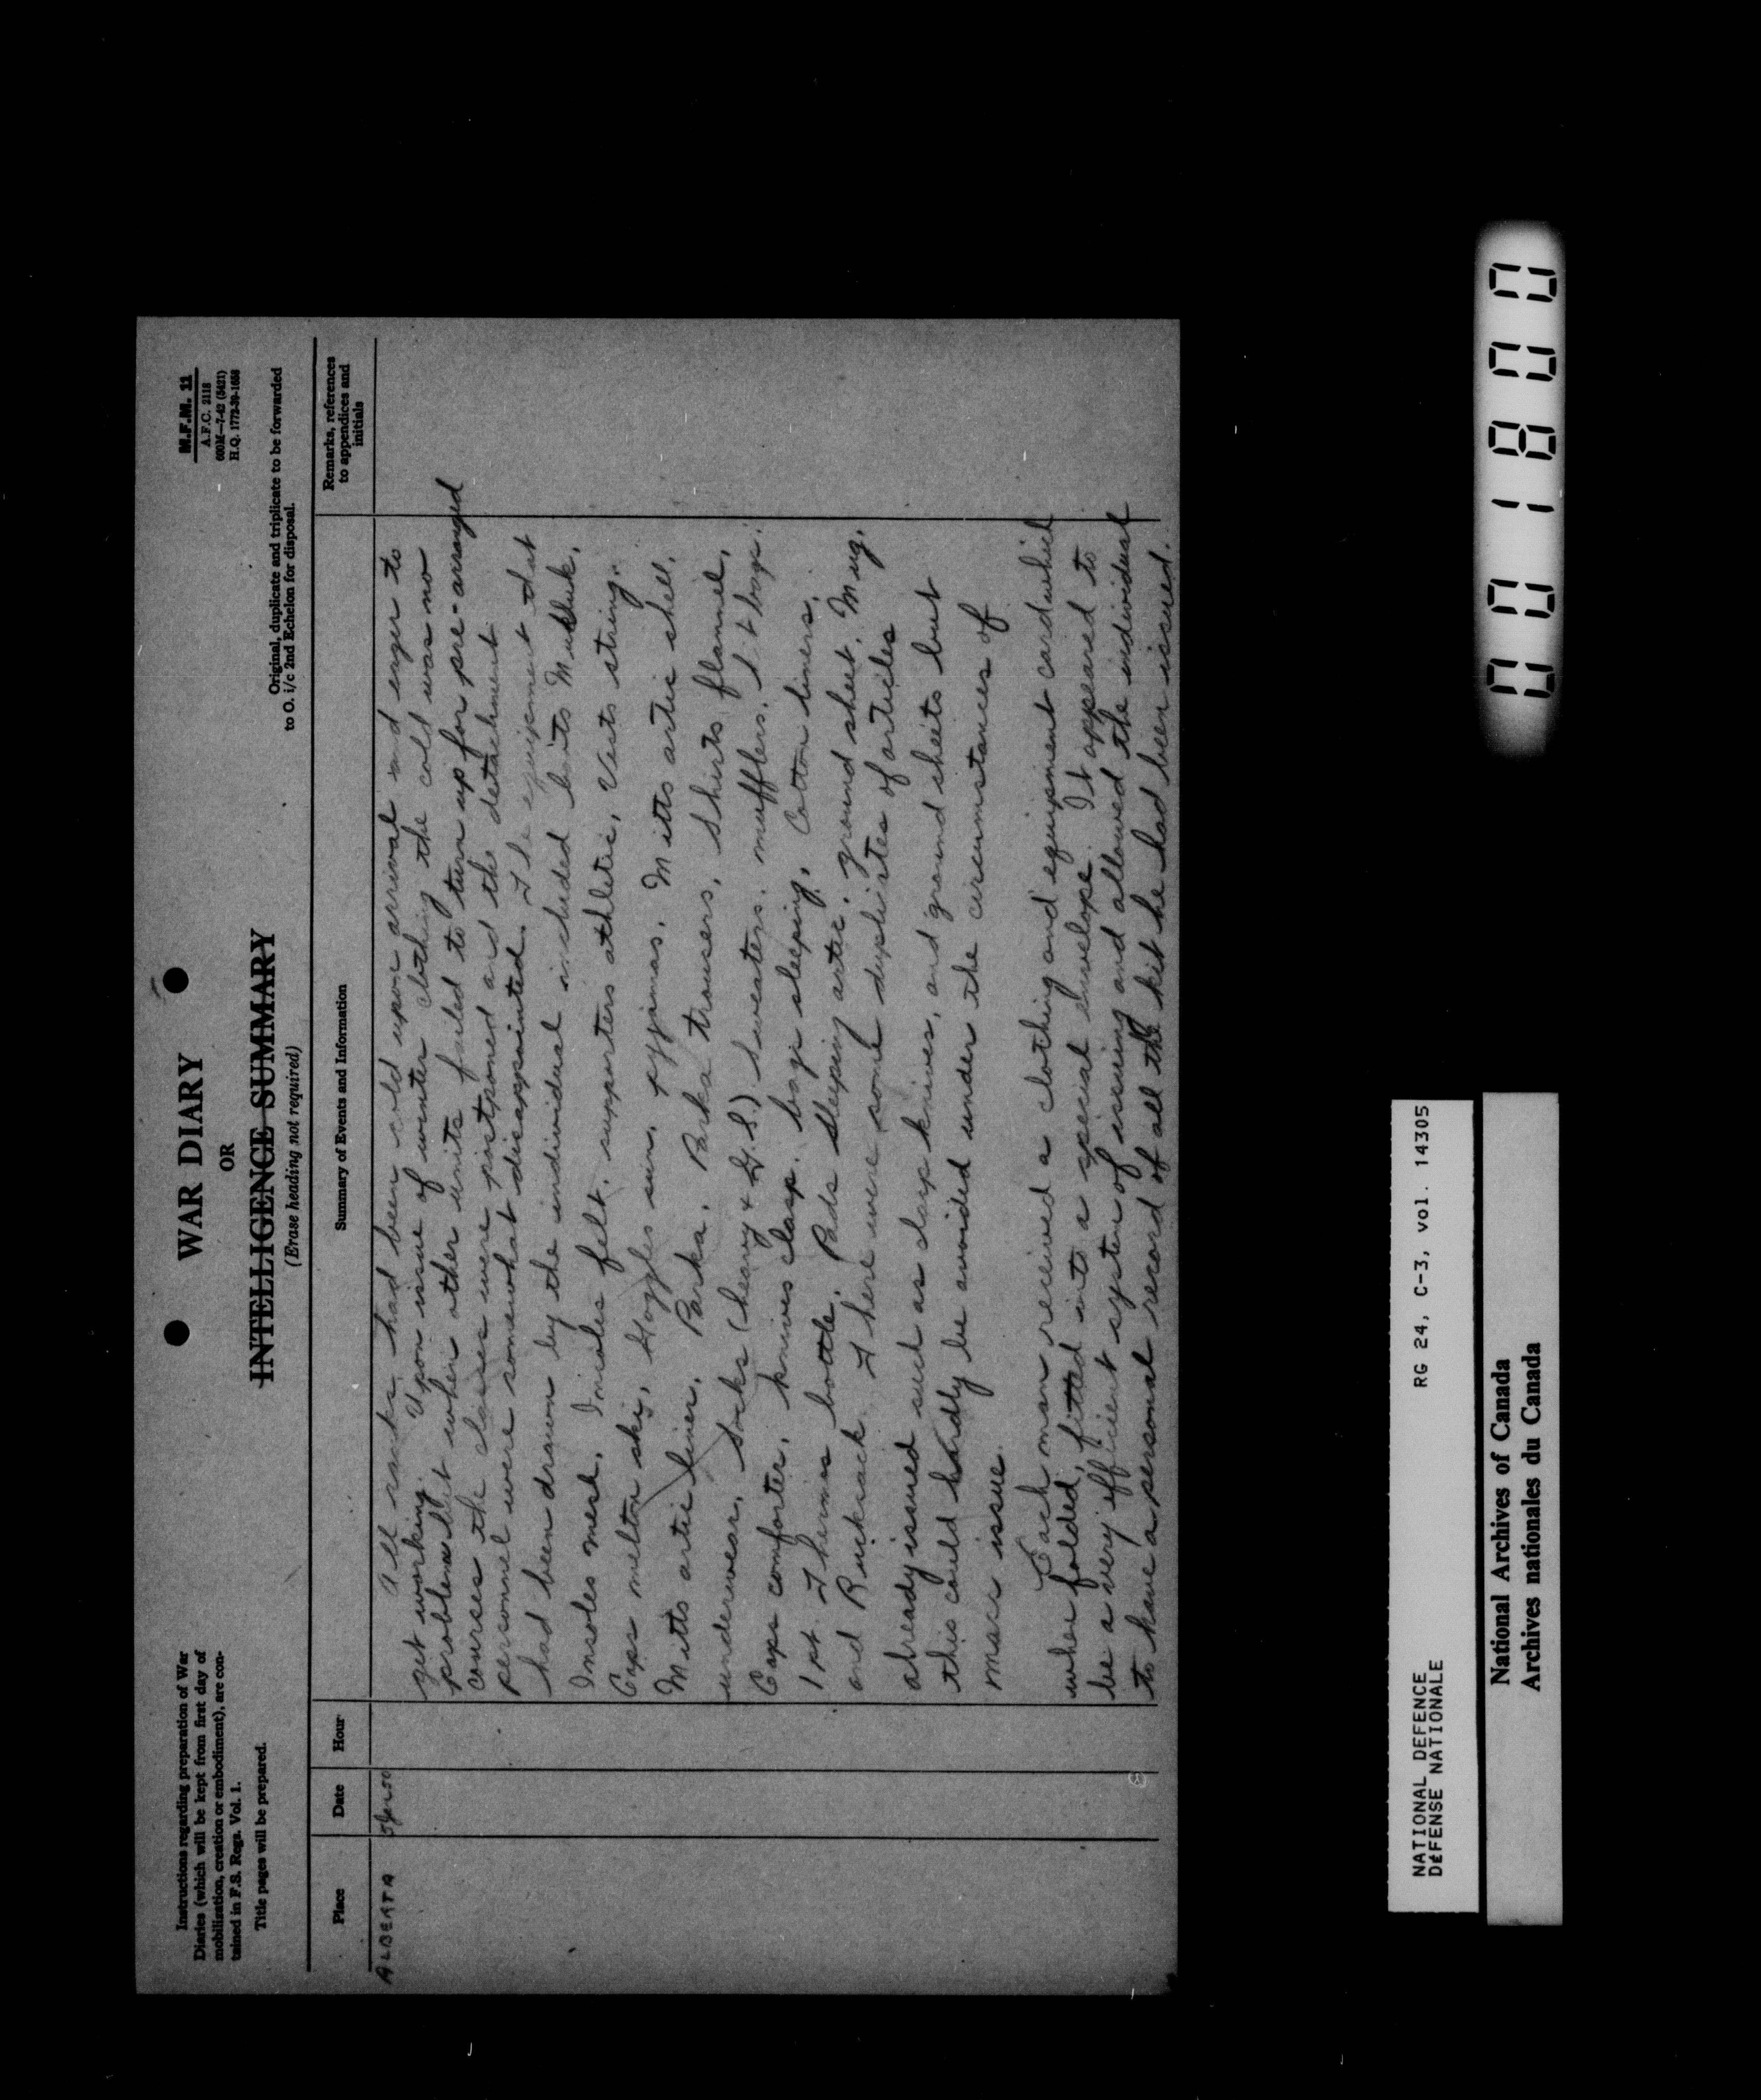 Instructions regarding preparation of War
Diaries (which will be kept from first day of
mobilization, creation or embodiment), are con-
tained in F.S. Regs. Vol. 1.
Title pages will be prepared.
WAR DIARY
OR
INTELLIGENCE SUMMARY
(Erase heading not required)
M.F.M. 11
A.F.C. 2118
600M—7-42 (5421)
H.Q. 1772-39-1658
Original, duplicate and triplicate to be forwarded
to O. i/c 2nd Echelon for disposal.
Place
Date
Hour
Summary of Events and Information
Remarks, references
to appendices and
initials
ALBERTA
All ranks had been cold upon arrival and eager to
get working. Upon issue of winter clothing the cold was no
problem but when other units failed to turn up for pre-arranged
courses the classes were postponed and the detachment
personnel were somewhat disappointed. The equipment that
had been drawn by the individual included boots Mukluk,
Insoles mesh, Insoles felt, supporters athletic, Vests string,
Caps melton ski, Goggles sun, pyjamas, Mitts artic shell,
Mitts artic liner, Parka, Parka trousers, Shirts flannel,
underwear, Socks (heavy & G.S.) Sweaters, mufflers, kit bags,
Caps comforter, knives clasp, bags sleeping, Cotton liners,
1 pt. Thermos bottle, Pads sleeping artic, ground sheet, Mug,
and Rucksack. There were some duplicates of articles
already issued such as clasp knives, and ground sheets but
this could hardly be avoided under the circumstances of
mass issue.
Each man received a clothing and equipment card which
when folded, fitted into a special envelope. It appeared to
be a very efficient system of issuing and allowed the individual
to have a personal record of all the kit he had been issued.
NATIONAL DEFENCE
DÉFENSE NATIONALE
RG 24, C-3, vol. 14305
National Archives of Canada
Archives nationales du Canada
001800